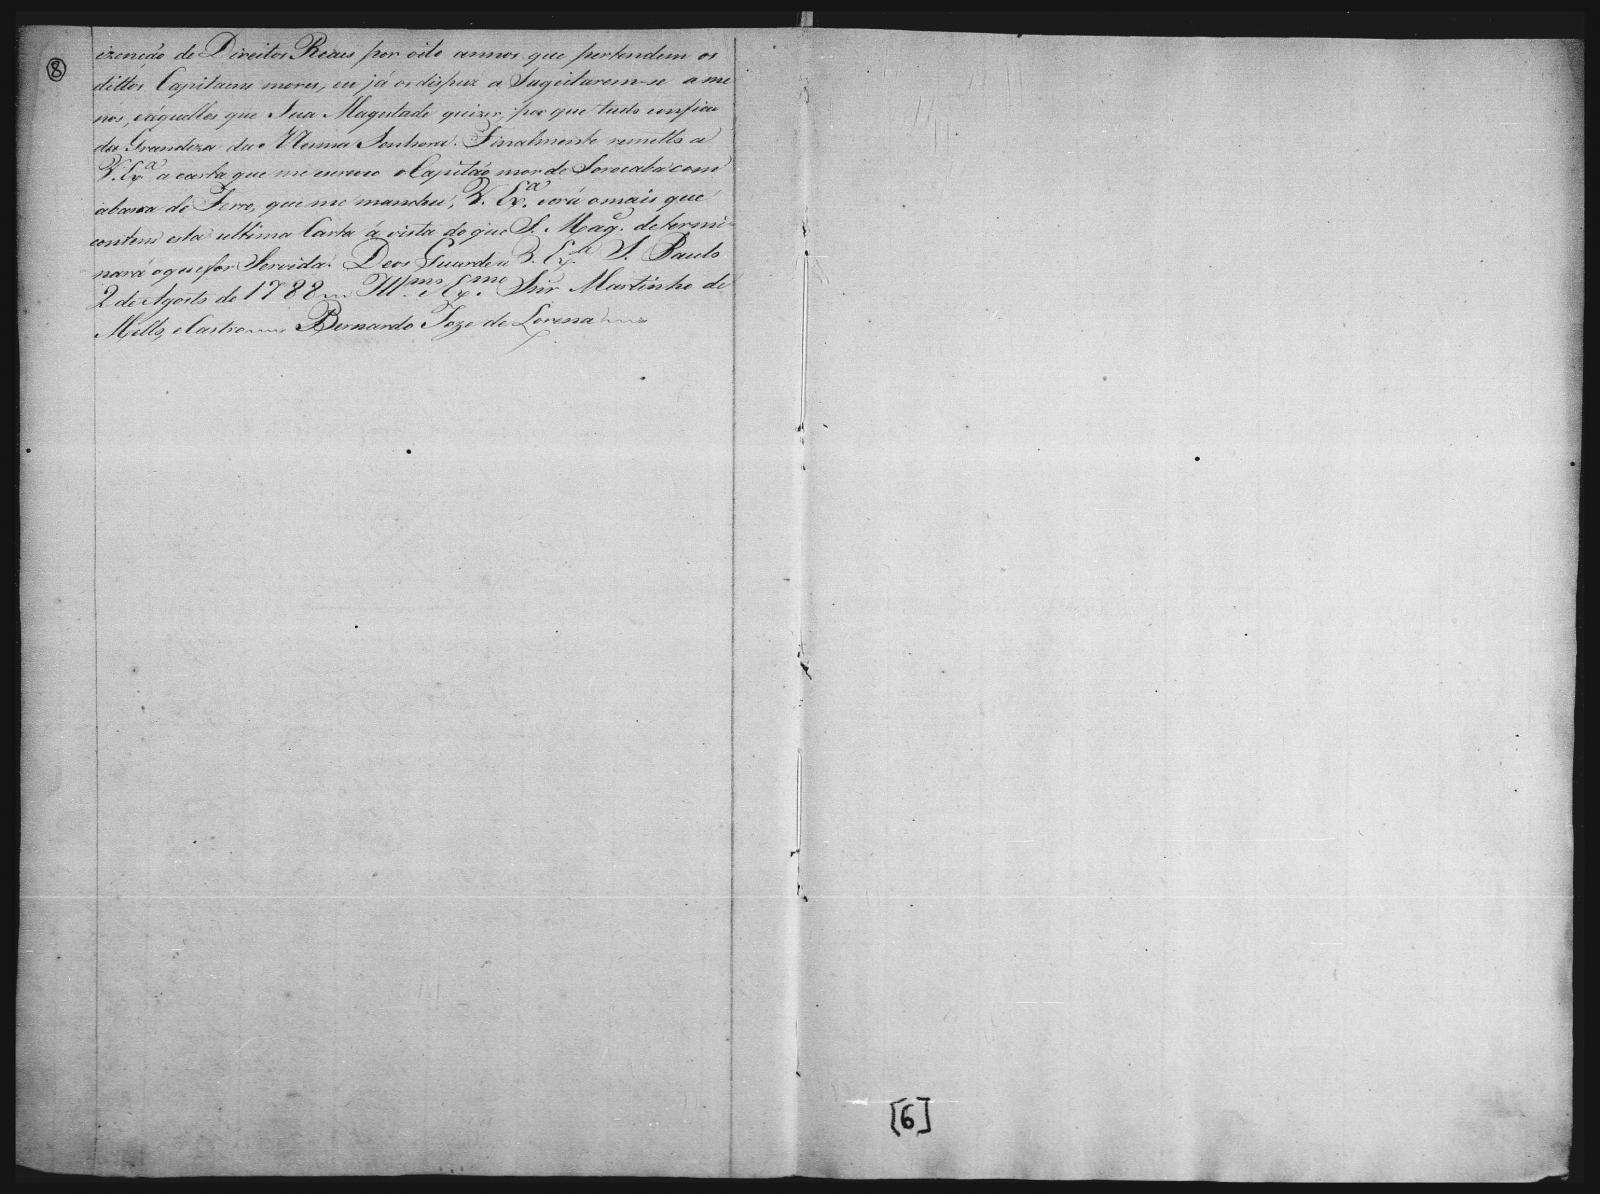 8
izenção de Direitos Reaes por oito annos que pertendem os
dittos Capitaens mores, eu já os dispuz a Sugeitarem-se a me
nos, e áquelles que Sua Magestade quizer, por que tudo confião
da Grandeza da Mesma Senhora. Finalmente remetto a
V. Exª a carta que me escreveo o Capitão mor de Sorocaba com
a barra de Ferro, que me mandou, V. Exª verá o mais que
contem esta ultima Carta á vista do que S. Mag.e determi-
nará o que for Servida. Deos Guarde a V. Exª S. Paulo
2 de Agosto de 1788 Illmo Exmo Snr Martinho de
Mello, e Castro Bernardo Joze de Lorena
[6]